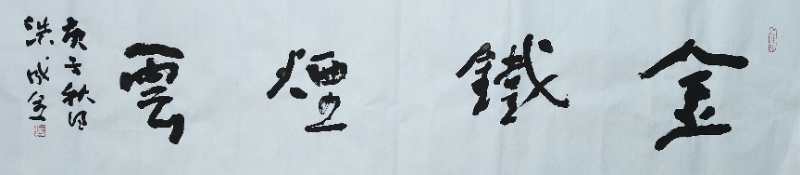 金鐵煙雲
庚子秋月
洪成